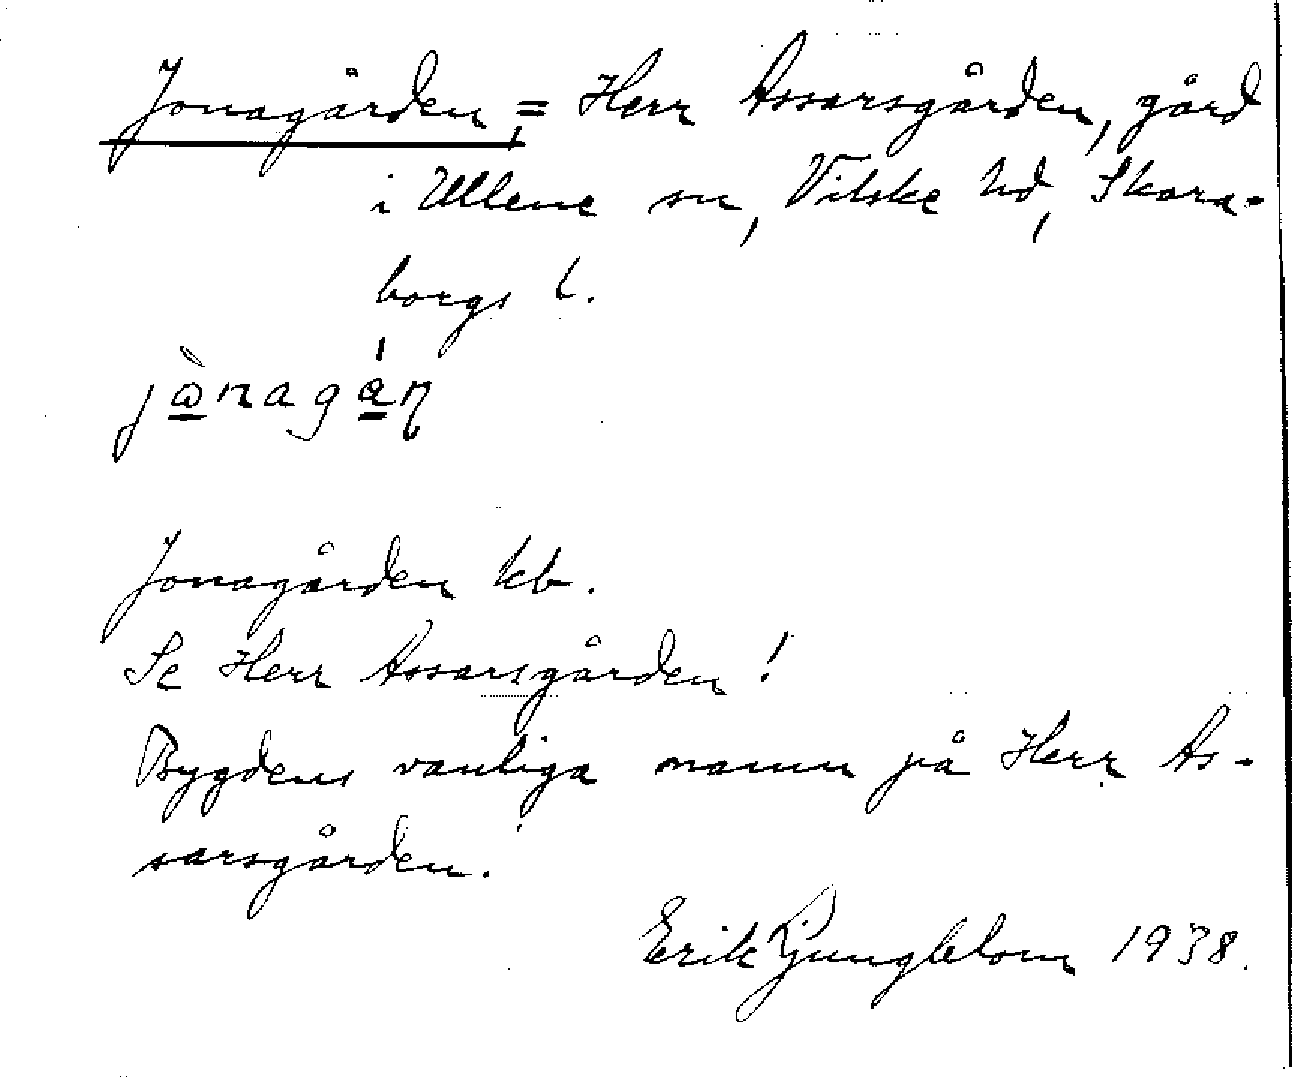 Jonagården, = Herr Assarsgården, gård
i Ullene sn, Vilske hd, Skara-
borgs l.
Jonagården kb.
Se Herr Assarsgården!
Bygdens vanliga namn på Herr As-
sarsgården.
Erik Ljungblom 1938.